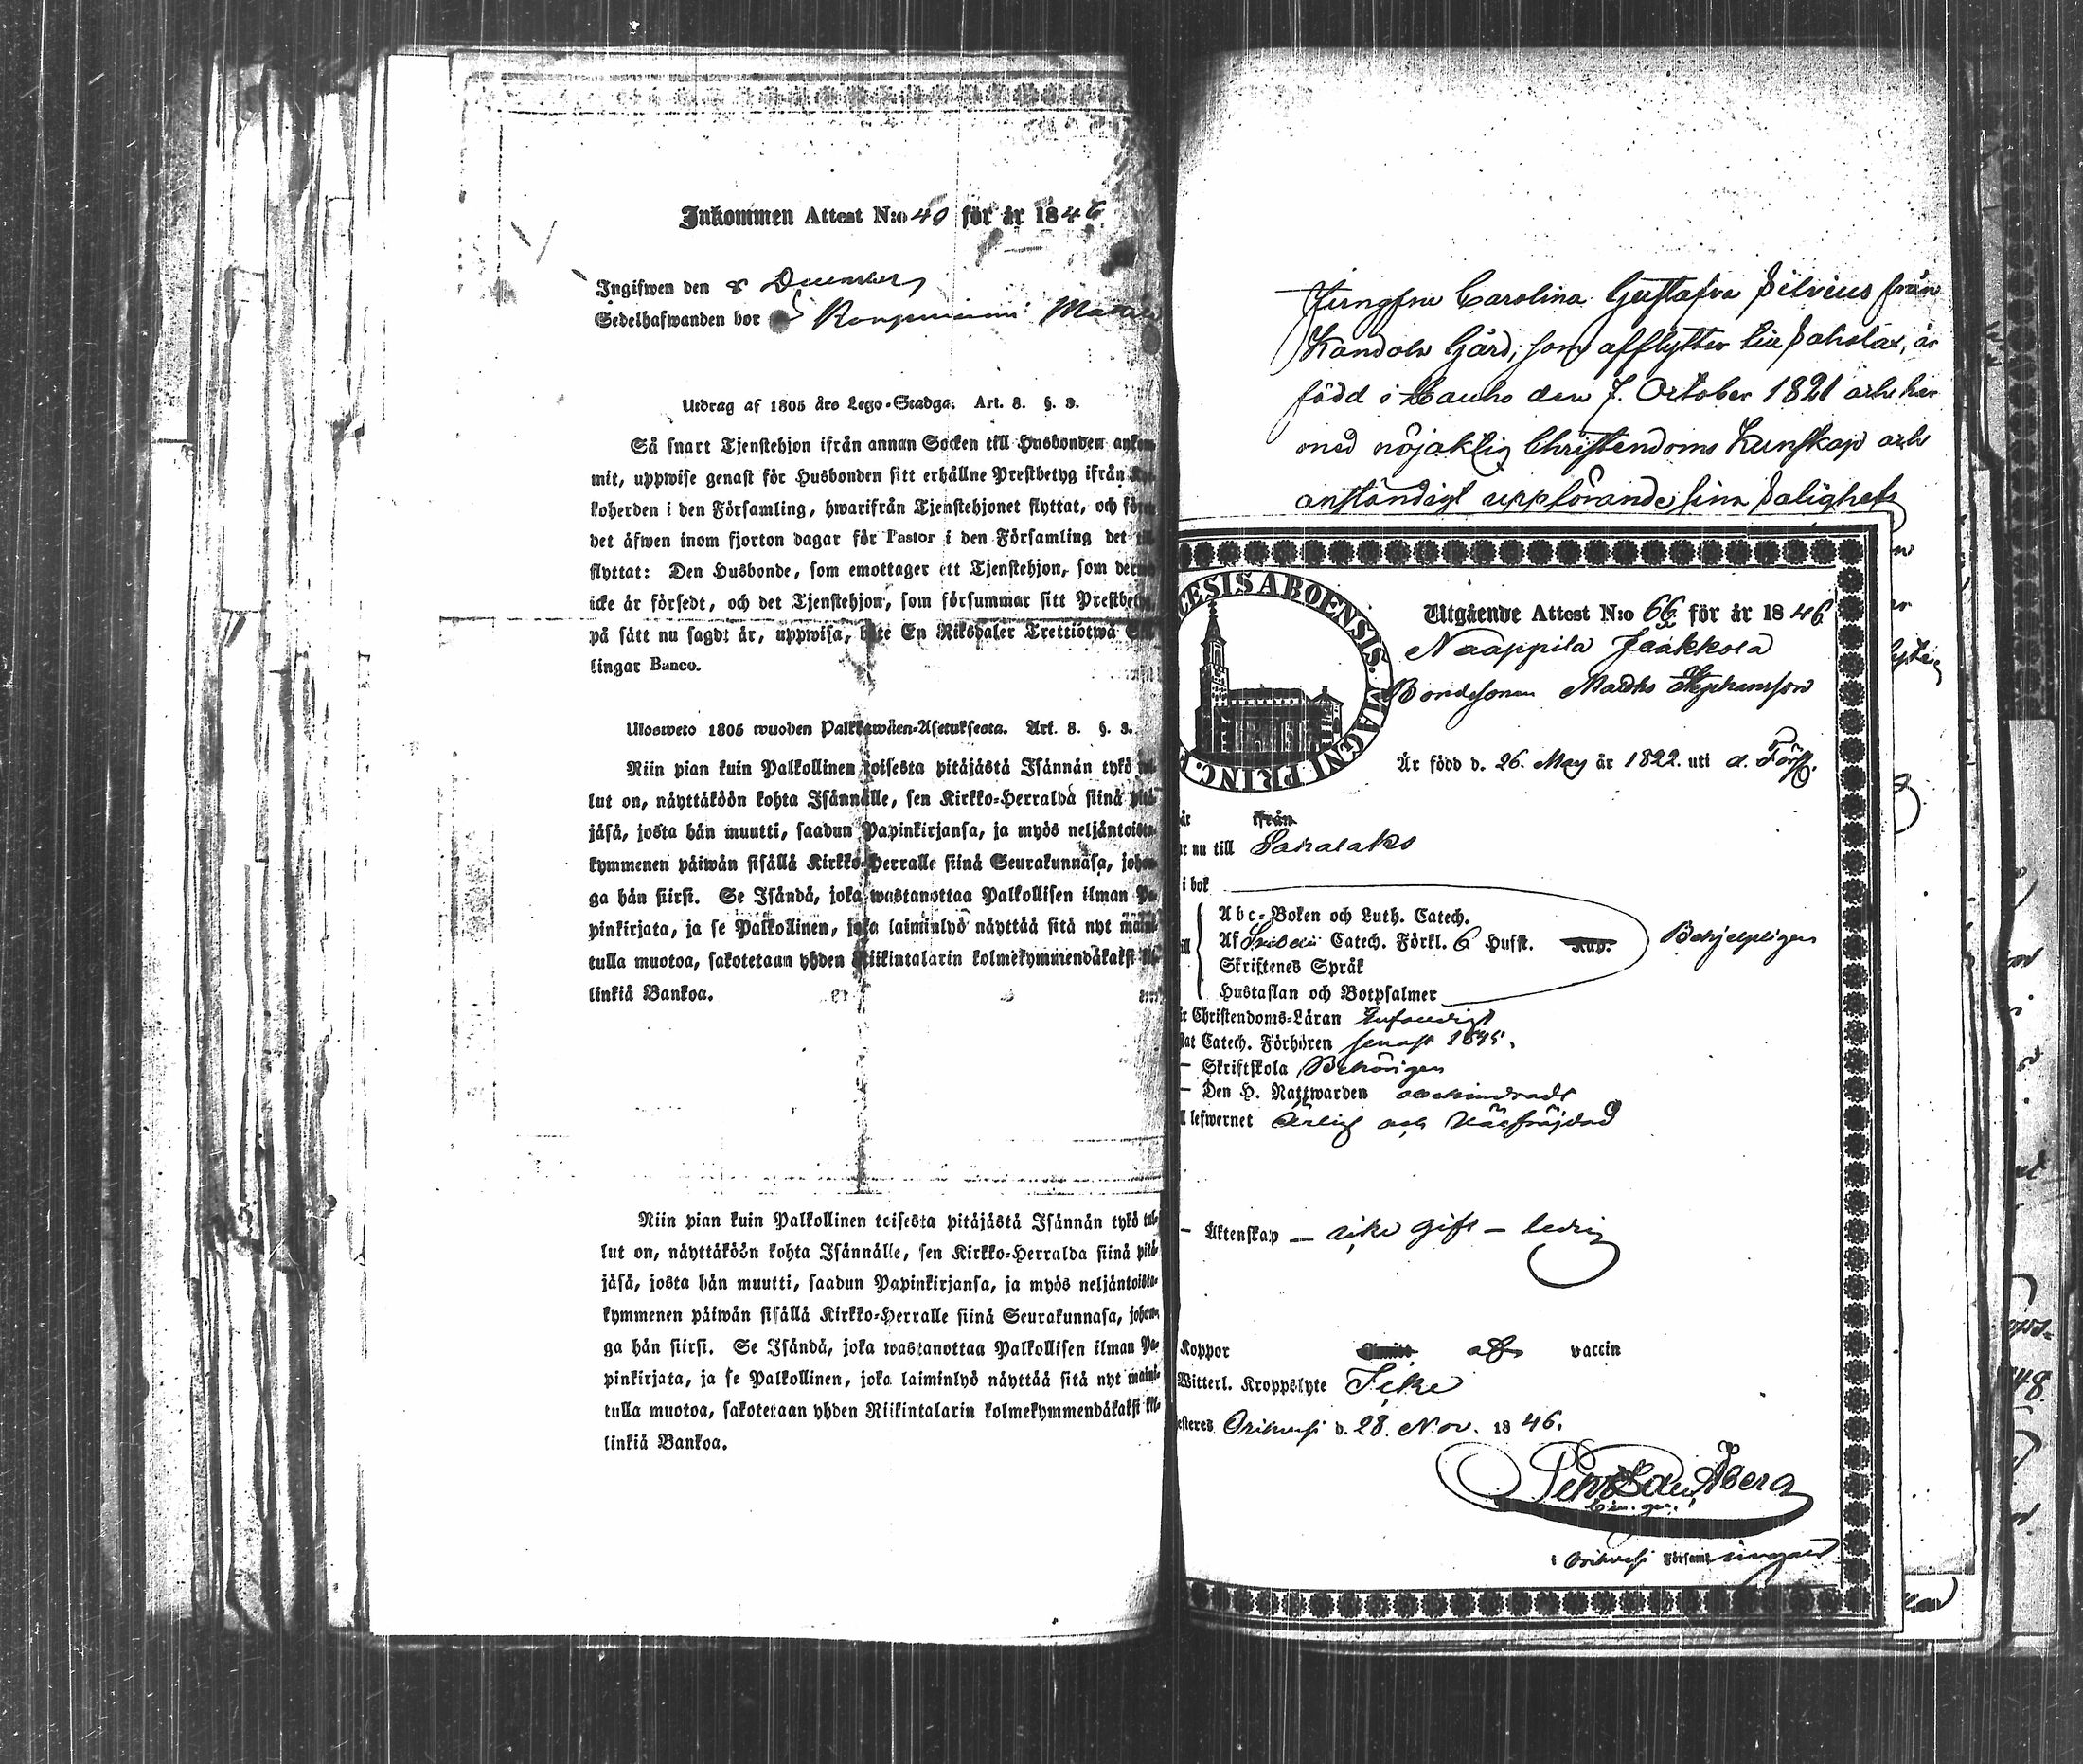 Inkommen Attest N:o 40 för år 1846
Ingifwen den 8 December
Sedelhafwanden bor
Utdrag af 1805 års Lego-Stadga. Art. 8. §. 3.
Så snart Tjenstehjon ifrån annan Socken till Husbonden ankom-
mit, uppwise genast för Husbonden sitt erhållne Prestbetyg ifrån Kyr-
koherden i den Församling, hwarifrån Tjenstehjonet flyttat, och före
det äfwen inom fjorton dagar för Pastor i den Församling det till
flyttat: Den Husbonde, som emottager ett Tjenstehjon, som dermed
icke är försedt, och det Tjenstehjon, som försummar sitt Prestbetyg
på sätt nu sagdt är, uppwisa, böte En Riksdaler Trettiotwå Skil-
lingar Banco.
Ulosweto 1805 wuoden Palkkawäen-Asetuksesta. Art. 8. §. 3.
Niin pian kuin Palkollinen toisesta pitäjästä Isännän tykö tul-
lut on, näyttäköön kohta Isännälle, sen Kirkko-Herralda siinä pitä-
jäsä, josta hän muutti, saadun Papinkirjansa, ja myös neljäntoista-
kymmenen päiwän sisällä Kirkko-Herralle siinä Seurakunnasa, johon-
ga hän siirsi. Se Isändä, joka wastanottaa Palkollisen ilman Pa-
pinkirjata, ja se Palkollinen, joka laiminlyö näyttää sitä nyt maini-
tulla muotoa, sakotetaan yhden Riikintalarin kolmekymmendäkaksi kil-
linkiä Bankoa.
Niin pian kuin Palkollinen toisesta pitäjästä Isännän tykö tul-
lut on, näyttäköön kohta Isännälle, sen Kirkko-Herralda siinä pitä-
jäsä, josta hän muutti, saadun Papinkirjansa, ja myös neljäntoista-
kymmenen päiwän sisällä Kirkko-Herralle siinä Seurakunnasa, johon-
ga hän siirsi. Se Isändä, joka wastanottaa Palkollisen ilman Pa-
pinkirjata, ja se Palkollinen, joka laiminlyö näyttää sitä nyt maini-
tulla muotoa, sakotetaan yhden Riikintalarin kolmekymmendäkaksi kil-
linkiä Bankoa.
Jungfru Carolina Gustafva Silvius från
Kandola Gård, som afflyttar till Sahalax, är
född i Hauho den 7. October 1821 och har
med nöjaktig Christendoms Kunskap och
anständigt uppförande sina Salighets
CESIS ABOENSIS. MAGNI PRINC. F
Utgående Attest N:o 66 för år 1846
Naappila Jaakkola
Bondesonen Matts Stephansson
Är född d. 26. May år 1822. uti d. Förs.
är ifrån
r nu till Sahalaks
i bok
Abc-Boken och Luth. Catech.
Af Svebelii Catech. Förkl. 6 Hufst. Kap. Behjelpligen
Skriftenes Språk
Hustaflan och Botpsalmer
Christendoms-Läran Enfaldigt
Catech. Förhören senast 1845.
— Skriftskola Behörigen
— Den H. Nattwarden obehindradt
lefwernet Ärlig och Välfräjdad
— Äktenskap — icke gift — ledig
Koppor haft af vaccin
Witterl. Kroppslyte Icke
esteres Orihvesi d. 28. Nov. 1846.
i Orihvesi Församl.